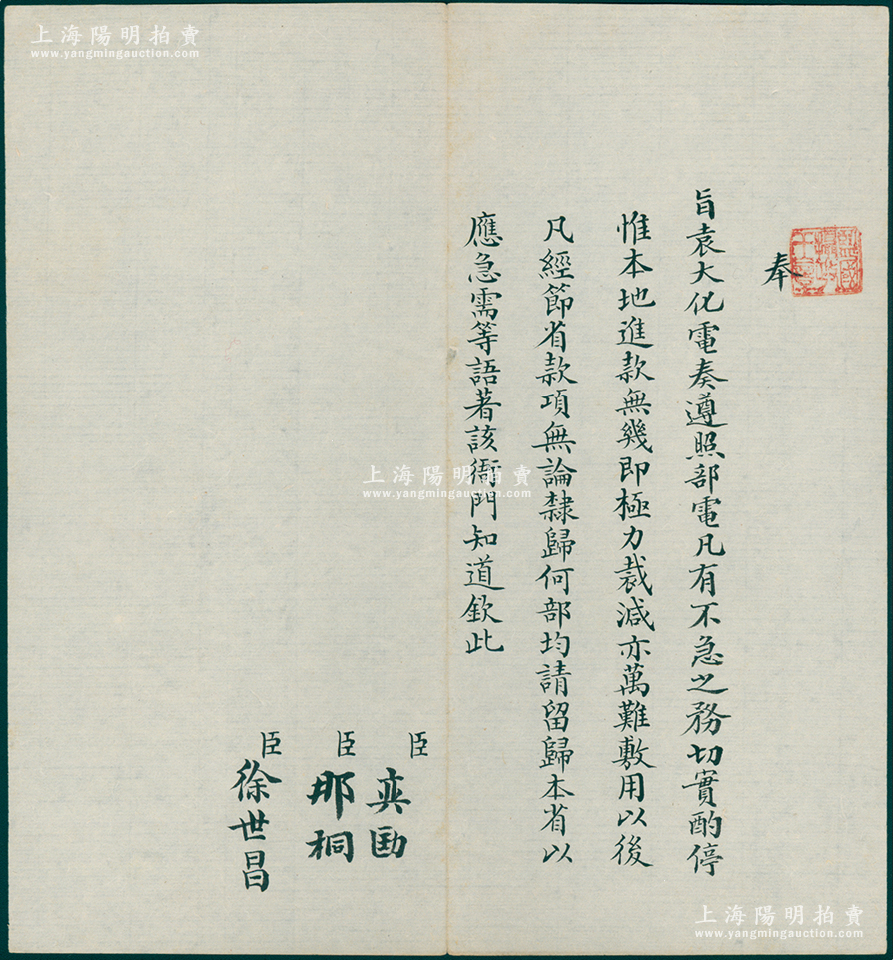 上海陽明拍賣
www.yangmingauction.com
奉
旨袁大化電奏遵照部電凡有不急之務切實酌停
惟本地進款無幾即極力裁減亦萬難敷用以後
凡經節省款項無論隸歸何部均請留歸本省以
應急需等語著該衙門知道欽此
臣奕劻
臣那桐
臣徐世昌
上海陽明拍賣
www.yangmingauction.com
上海陽明拍賣
www.yangmingauction.com